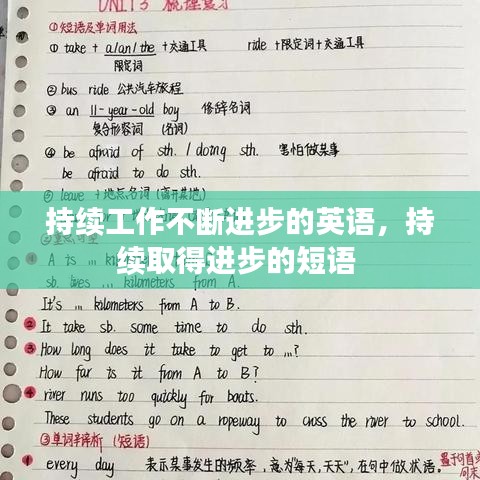 UNIT 3 梳理复习
①短语及单词用法
① take + a/an/the +交通工具 ride +限定词+交通工具
限定词
② bus ride 公共汽车旅程
③ an 11-year-old boy 修辞名词
复合形容词 (名词)
④ be afraid of sth. / doing sth. 害怕做某事
be afraid to do sth.
⑤ leave +地点名词(离开某地)
持续工作不断进步的英语，持
续取得进步的短语
A is ... kilometers from B
sb. lives ... kilometers from A to B.
It's ... kilometers from A to B.
② It take sb. some time to do sth.
③ How long does it take to get to ...?
How far is it from A to B?
④ river runs too quickly for boats.
These students go on a ropeway to cross the river to school.
③单词辨析(短语)
① every day 表示某事发生的频率，意为"每天,天天",在句中做状语。
置于句首
句末